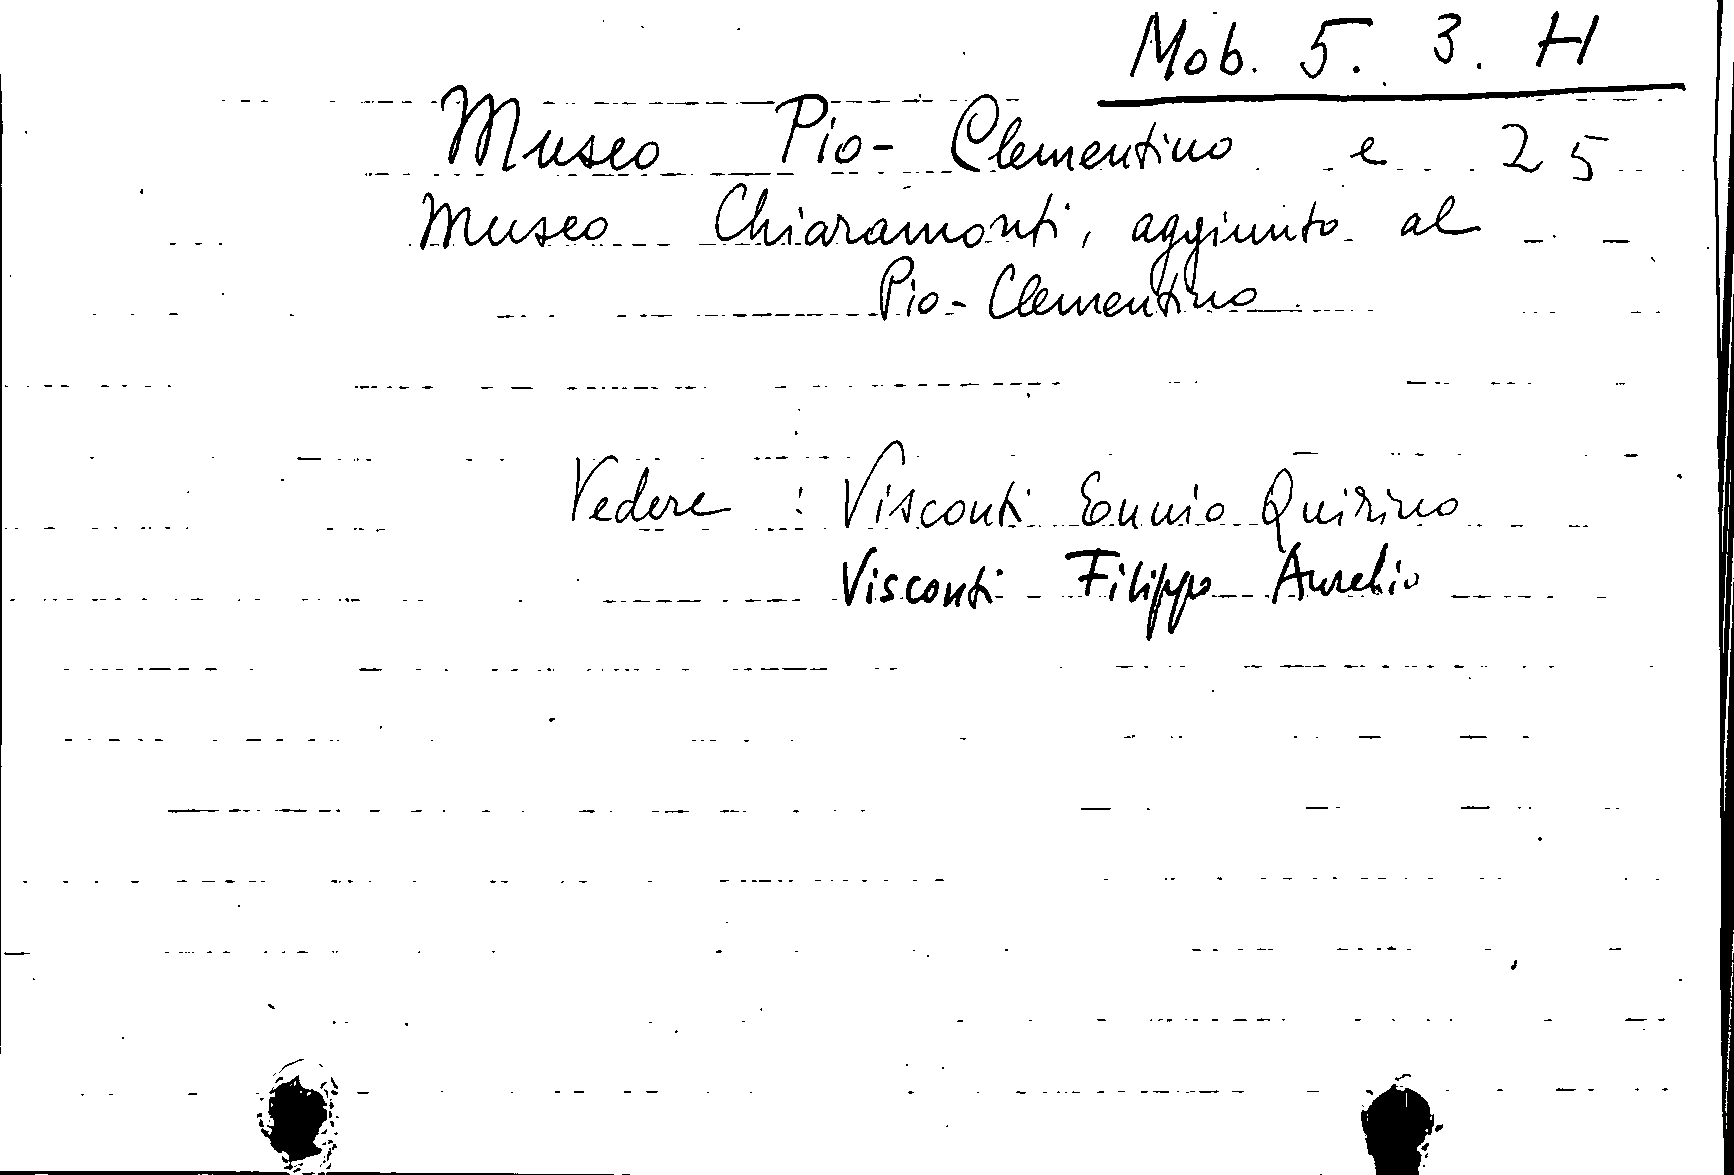 Mob. 5. 3. H
Museo Pio-Clementino e 25
Museo Chiaramonti, aggiunto al
Pio-Clementino
Vedere : Visconti Ennio Quirino
Visconti Filippo Aurelio